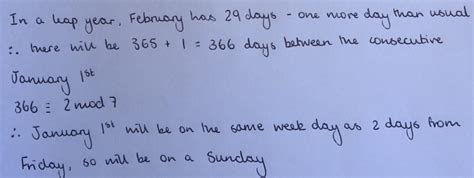 In a leap year, February has 29 days - one more day than usual
∴ there will be 365 + 1 = 366 days between the consecutive
January 1st
366 ≡ 2 mod 7
∴ January 1st will be on the same week day as 2 days from
Friday, so will be on a Sunday